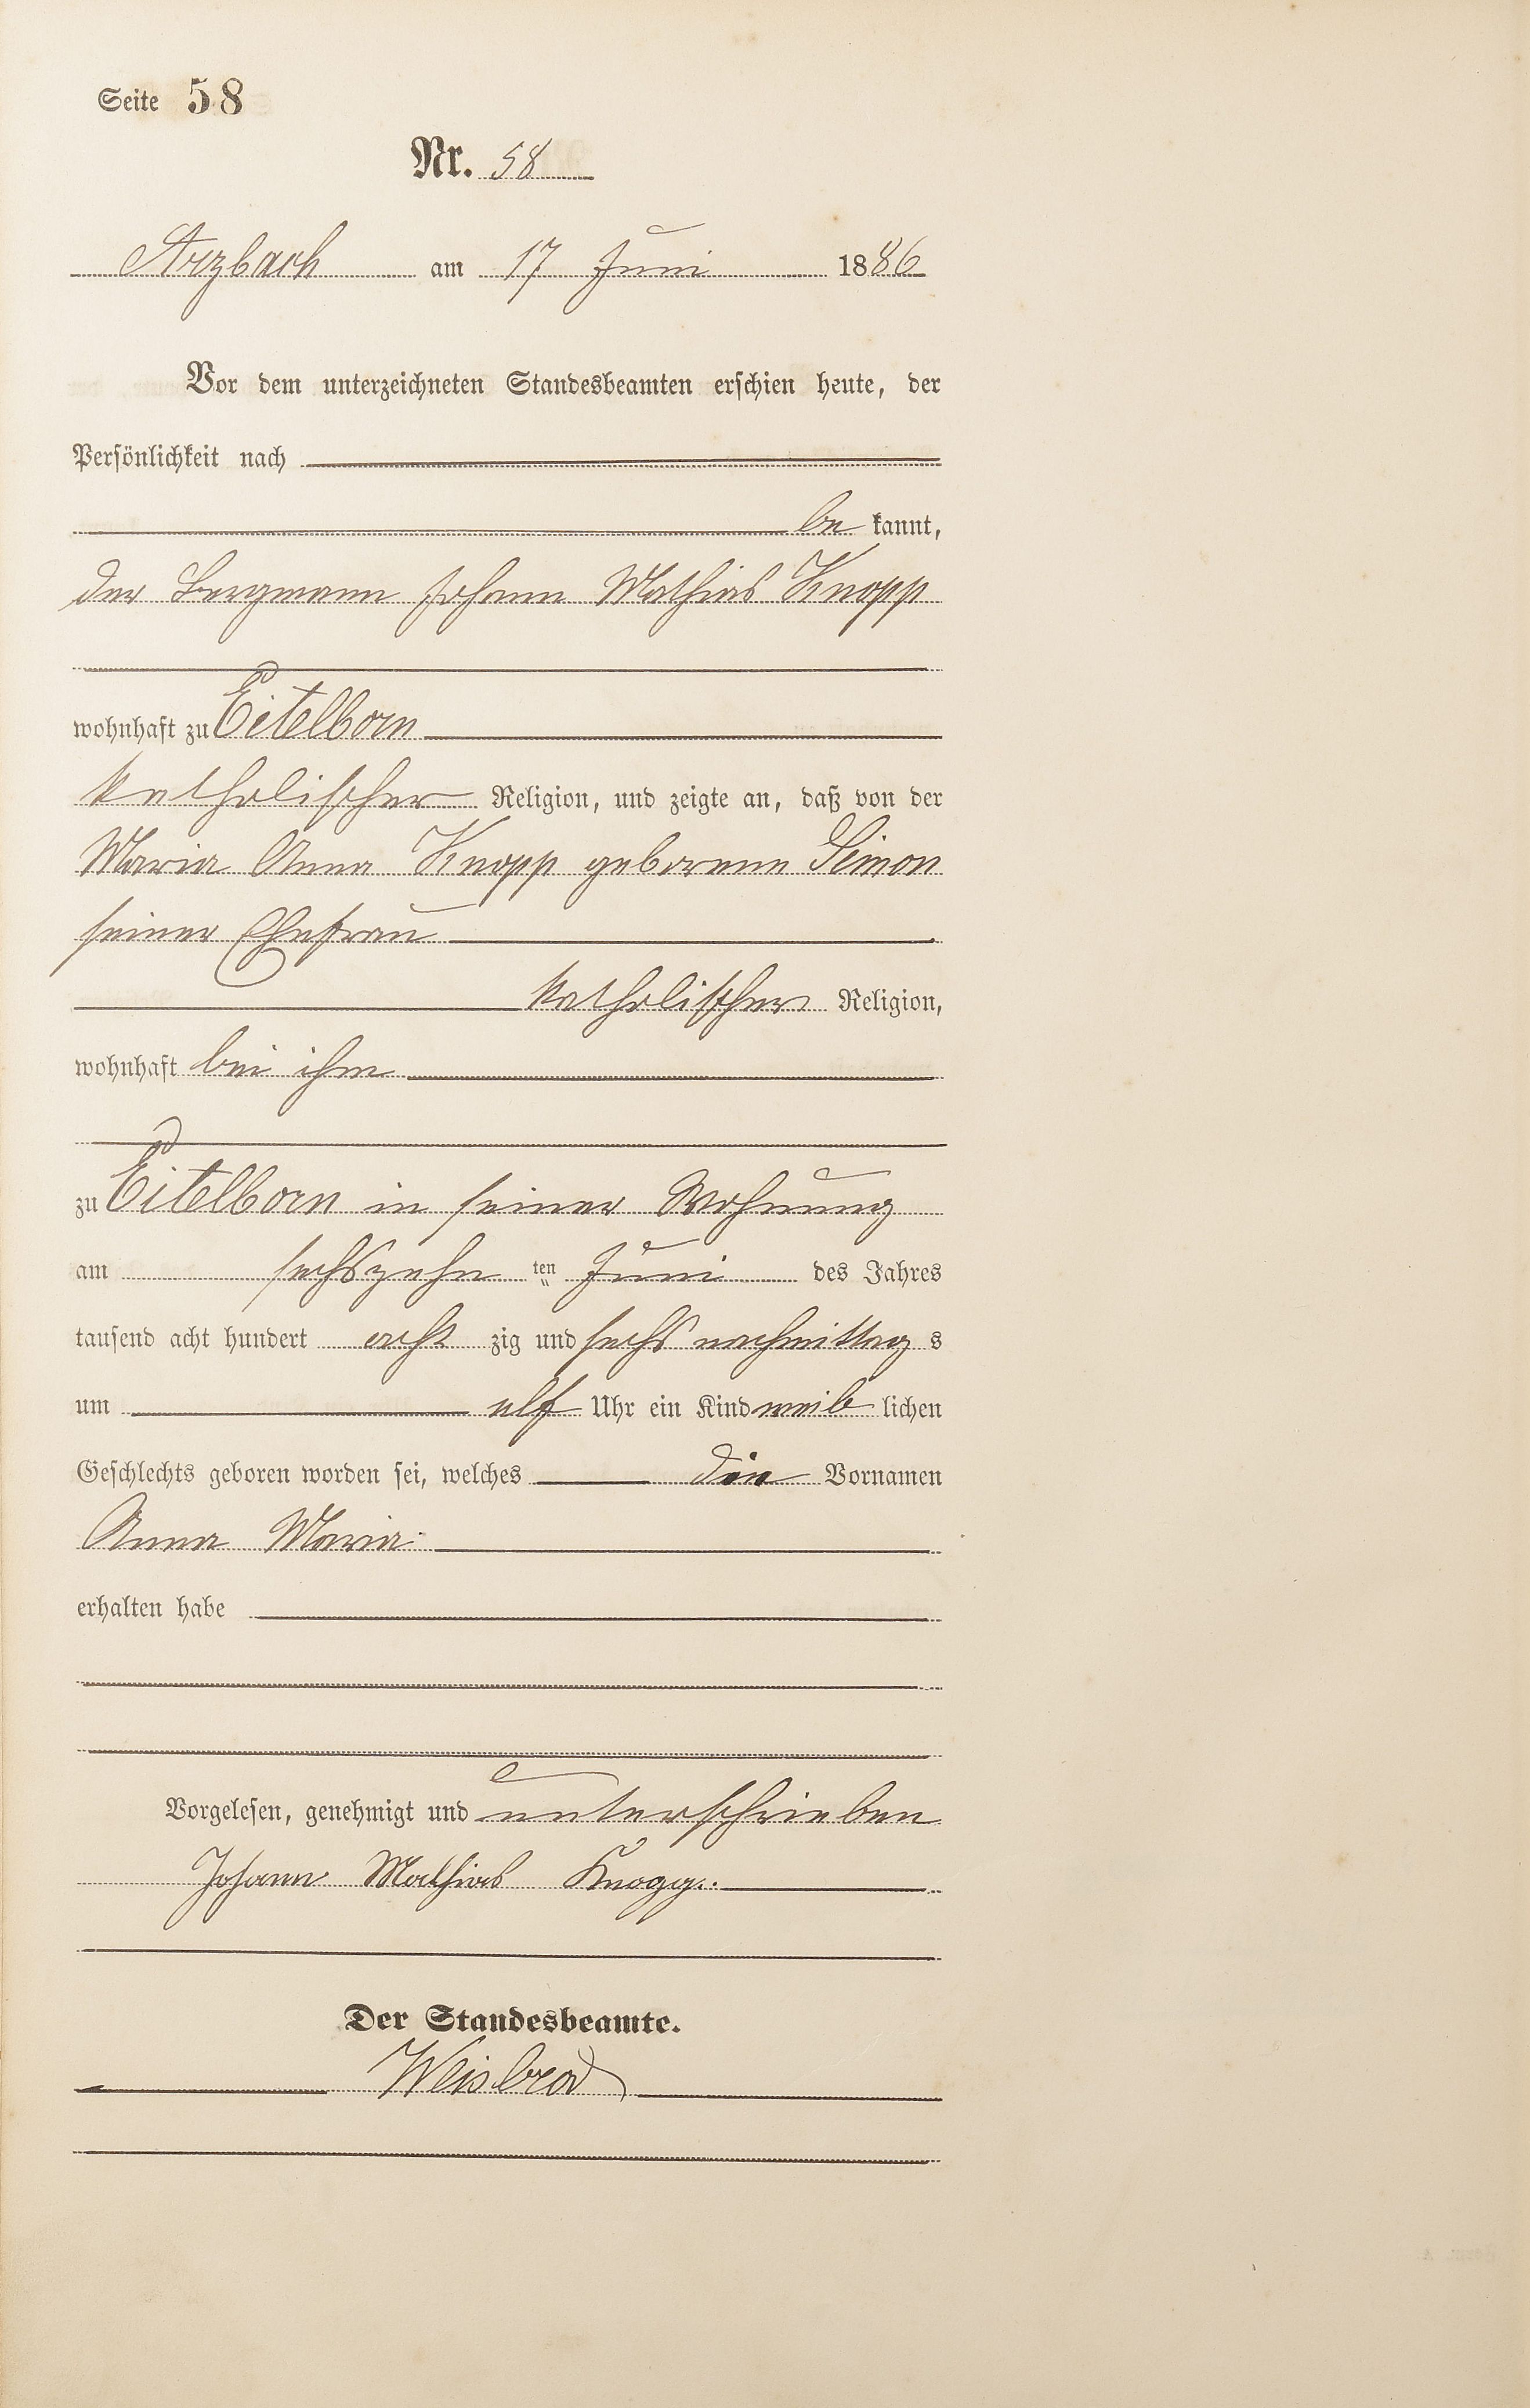 Seite 58
Nr. 58
Arzbach am 17 Juni 1886
Vor dem unterzeichneten Standesbeamten erschien heute, der
Persönlichkeit nach
be kannt,
der Bergmann Johann Mathias Knopp
wohnhaft zu Eitelborn
katholischer Religion, und zeigte an, daß von der
Maria Anna Knopp geborene Simon
seiner Ehefrau
katholischer Religion,
wohnhaft bei ihm
zu Eitelborn in seiner Wohnung
am sechszehn ten Juni des Jahres
tausend acht hundert acht zig und sechs nachmittag s
um elf Uhr ein Kind weib lichen
Geschlechts geboren worden sei, welches die Vornamen
Anna Maria
erhalten habe
Vorgelesen, genehmigt und unterschrieben
Johann Mathias Knopp.
Der Standesbeamte.
Weisbrod